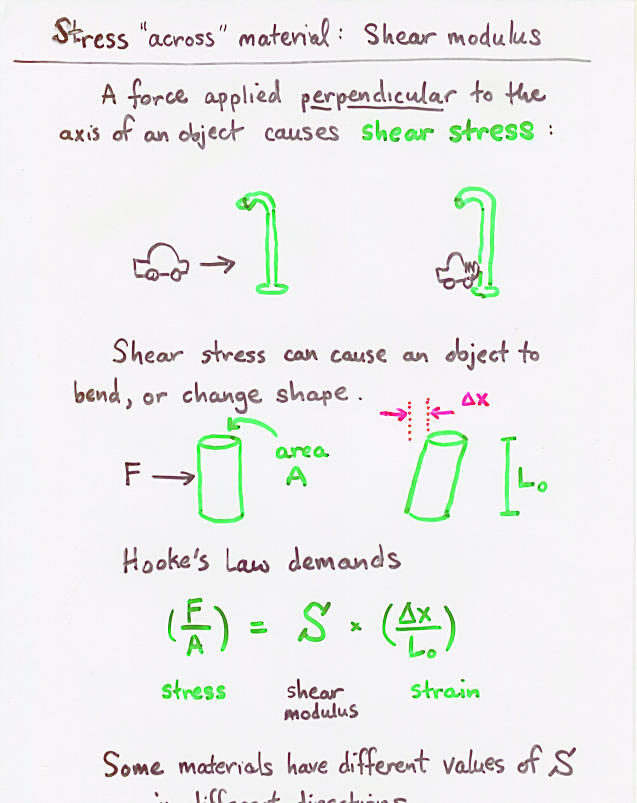 Stress "across" material: Shear modulus
A force applied perpendicular to the
axis of an object causes shear stress:
Shear stress can cause an object to
bend, or change shape.
Δx
area
A
F
L₀
Hooke's Law demands
(F/A) = S × (Δx/L₀)
stress shear modulus strain
Some materials have different values of S
in different directions